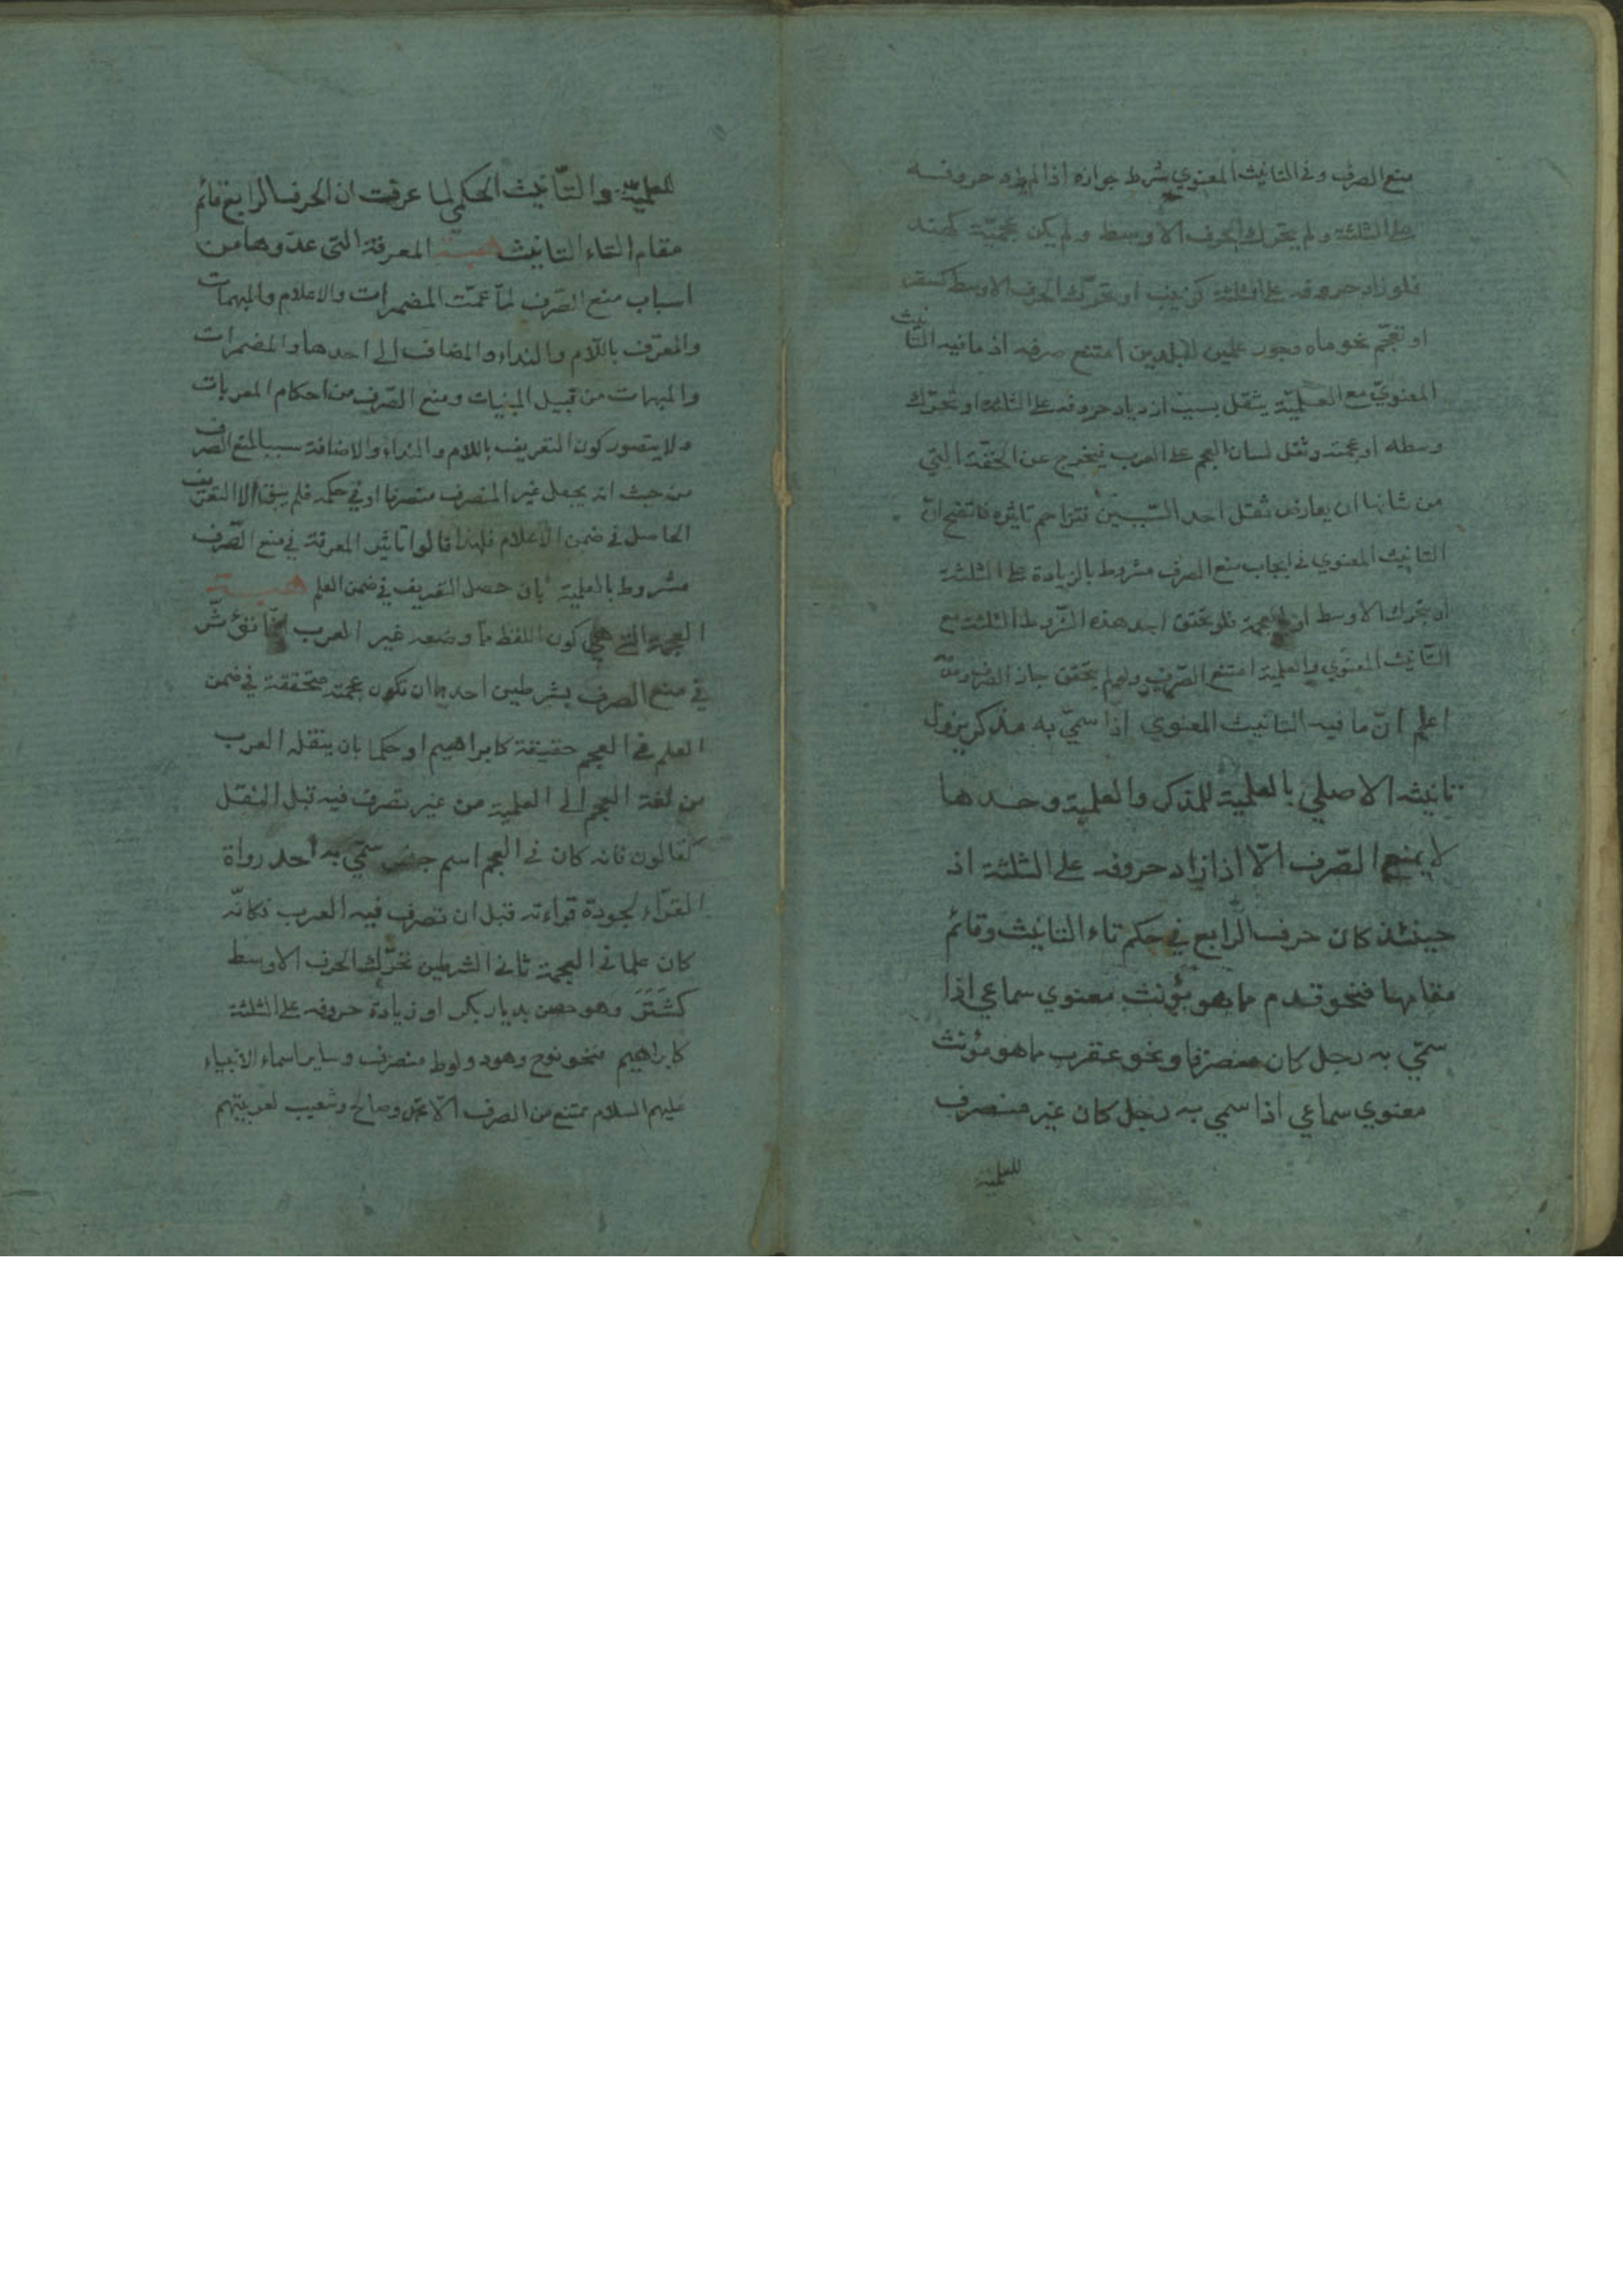 منع الصرف وفي التانيث المعنوي شرط جوازه اذا لم يزد حروفه
على الثلثة ولم يتحرك الحرف الاوسط ولم يكن عجمية كهند
فلو زاد حروفه على الثلثة كزينب او تحرك الحرف الاوسط كسقر
او تعجم نحو ماه وجور علمين لبلدين امتنع صرفه اذ ما فيه التانيث
المعنوي مع العلمية يثقل بسبب ازدياد حروفه على الثلثة او تحرك
وسطه او عجمته وثقل لسان العجم على العرب فيخرج عن الخفة التي
من شانها ان يعارض ثقل احد السببين فتزاحم تاثيره فاتضح ان
التانيث المعنوي في ايجاب منع الصرف مشروط بالزيادة على الثلثة
او تحرك الاوسط او العجمة فلو تحقق احد هذه الشروط الثلثة مع
التانيث المعنوي والعلمية امتنع الصرف ولو لم يتحقق جاز الصرف
اعلم ان ما فيه التانيث المعنوي اذا سمي به مذكر يزول
تانيثه الاصلي بالعلمية للمذكر والعلمية وحدها
لا يمنع الصرف الا اذا زاد حروفه على الثلثة اذ
حينئذ كان حرف الرابع في حكم تاء التانيث وقائم
مقامها فنحو قدم مما هو مؤنث معنوي سماعي اذا
سمي به رجل كان منصرفا ونحو عقرب مما هو مؤنث
معنوي سماعي اذا سمي به رجل كان غير منصرف
للعلمية
للعلمية والتانيث الحكمي لما عرفت ان الحرف الرابع قائم
مقام التاء التانيث المعرفة التي عدوها من
اسباب منع الصرف لما عمت المضمرات والاعلام والمبهمات
والمعرف باللام والنداء والمضاف الى احدها والمضمرات
والمبهمات من قبيل المبنيات ومنع الصرف من احكام المعربات
ولا يتصور كون التعريف باللام والنداء والاضافة سببا لمنع الصرف
من حيث انه يجعل غير المنصرف منصرفا او في حكمه فلم يبق الا التعريف
الحاصل في ضمن الاعلام فلهذا قالوا تاثير المعرفة في منع الصرف
مشروط بالعلمية بان حصل التعريف في ضمن العلم
العجمة التي هي كون اللفظ مما وضعه غير العرب انما تؤثر
في منع الصرف بشرطين احدهما ان تكون عجمته متحققة في ضمن
العلم في العجم حقيقة كابراهيم او حكما بان ينقله العرب
من لغة العجم الى العلمية من غير تصرف فيه قبل النقل
كقالون فانه كان في العجم اسم جنس سمي به احد رواة
القراء لجودة قراءته قبل ان تصرف فيه العرب فكانه
كان علما في العجمة ثاني الشرطين تحرك الحرف الاوسط
كشتر وهو حصن بديار بكر او زيادة حروفه على الثلثة
كابراهيم فنحو نوح وهود ولوط منصرف وساير اسماء الانبياء
عليهم السلام ممتنع من الصرف الا محمد وصالح وشعيب لعربيتهم